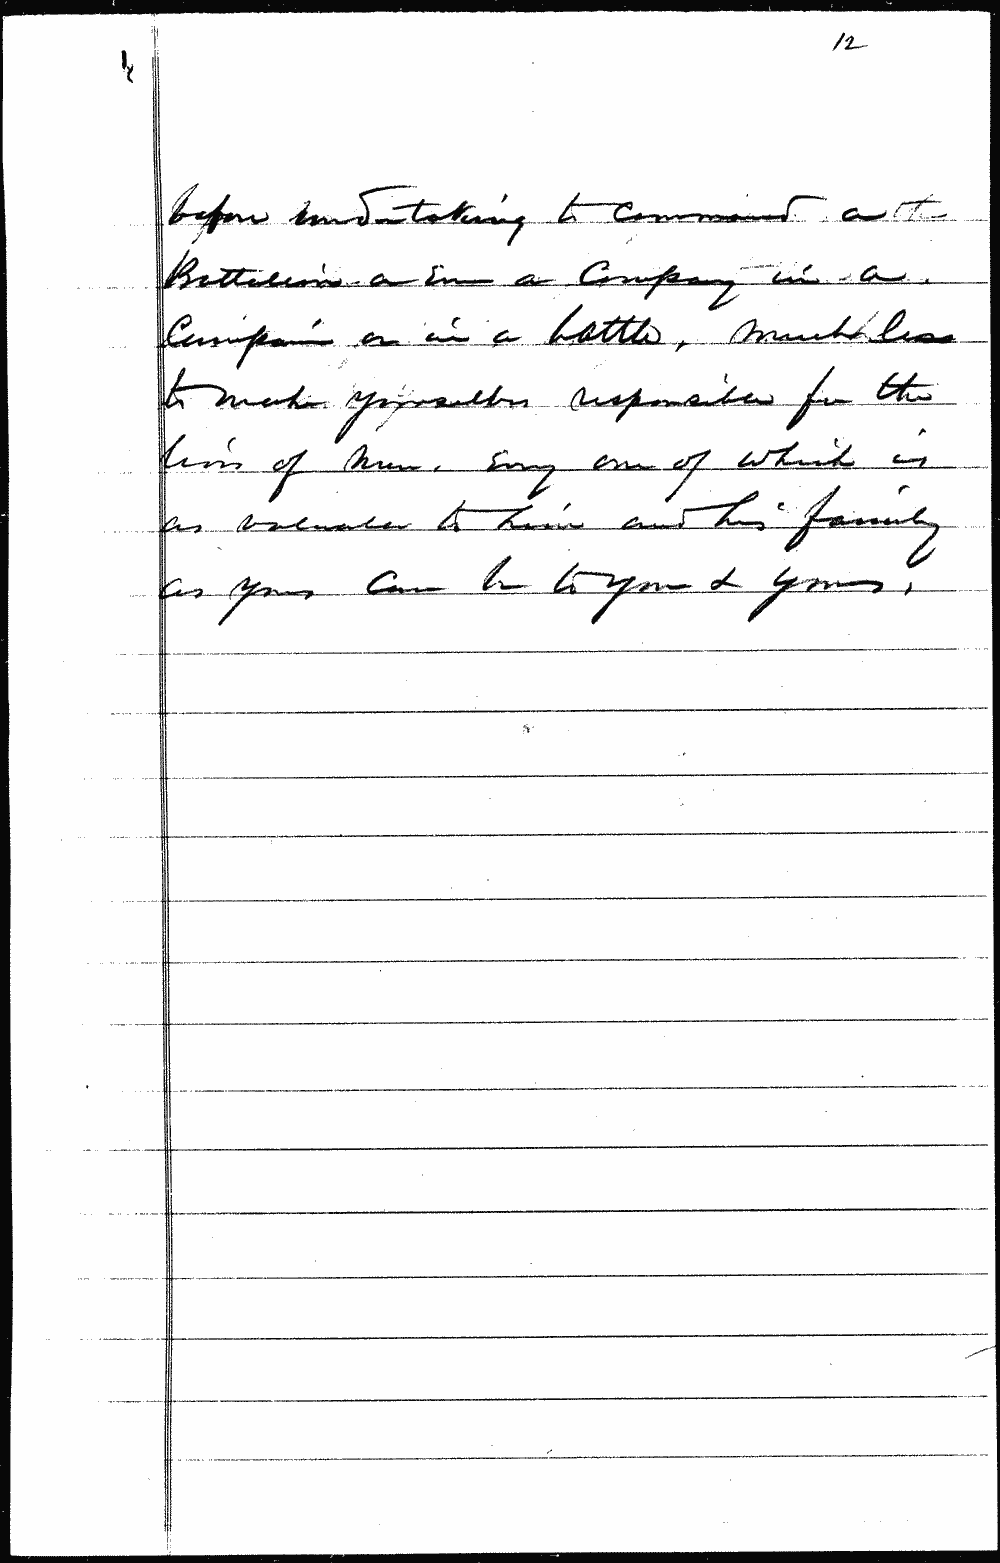 12
before undertaking to command a
Battalion or Even a Company in a
Campaign or in a battle, much less
to make yourselves responsible for the
lives of men. Every one of which is
as valuable to him and his family
as yours can be to you & yours.